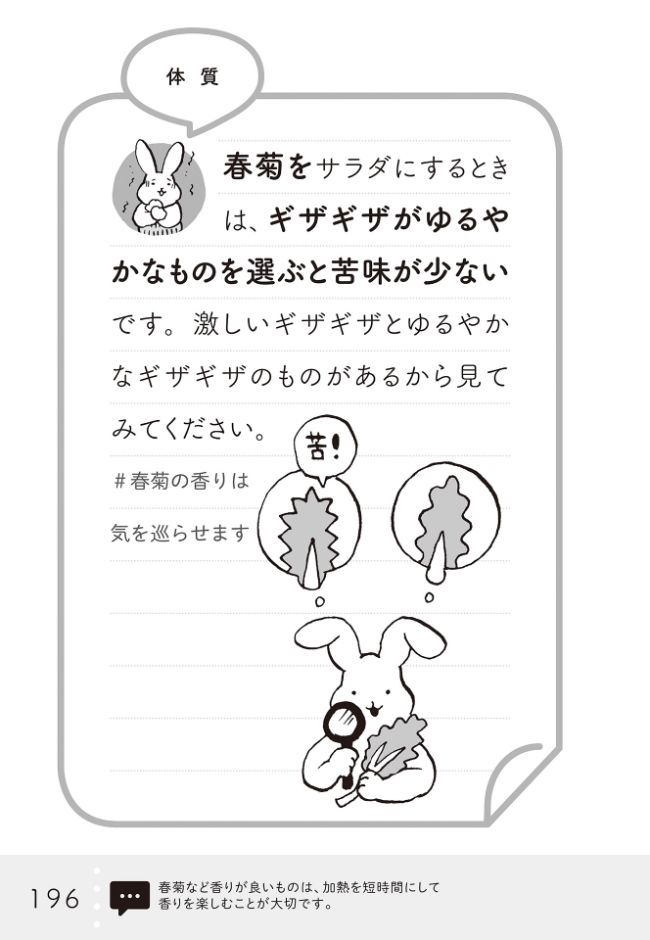 体 質
春菊をサラダにするとき
は、ギザギザがゆるや
かなものを選ぶと苦味が少ない
です。激しいギザギザとゆるやか
なギザギザのものがあるから見て
みてください。
苦!
#春菊の香りは
気を巡らせます
196
春菊など香りが良いものは、加熱を短時間にして
香りを楽しむことが大切です。